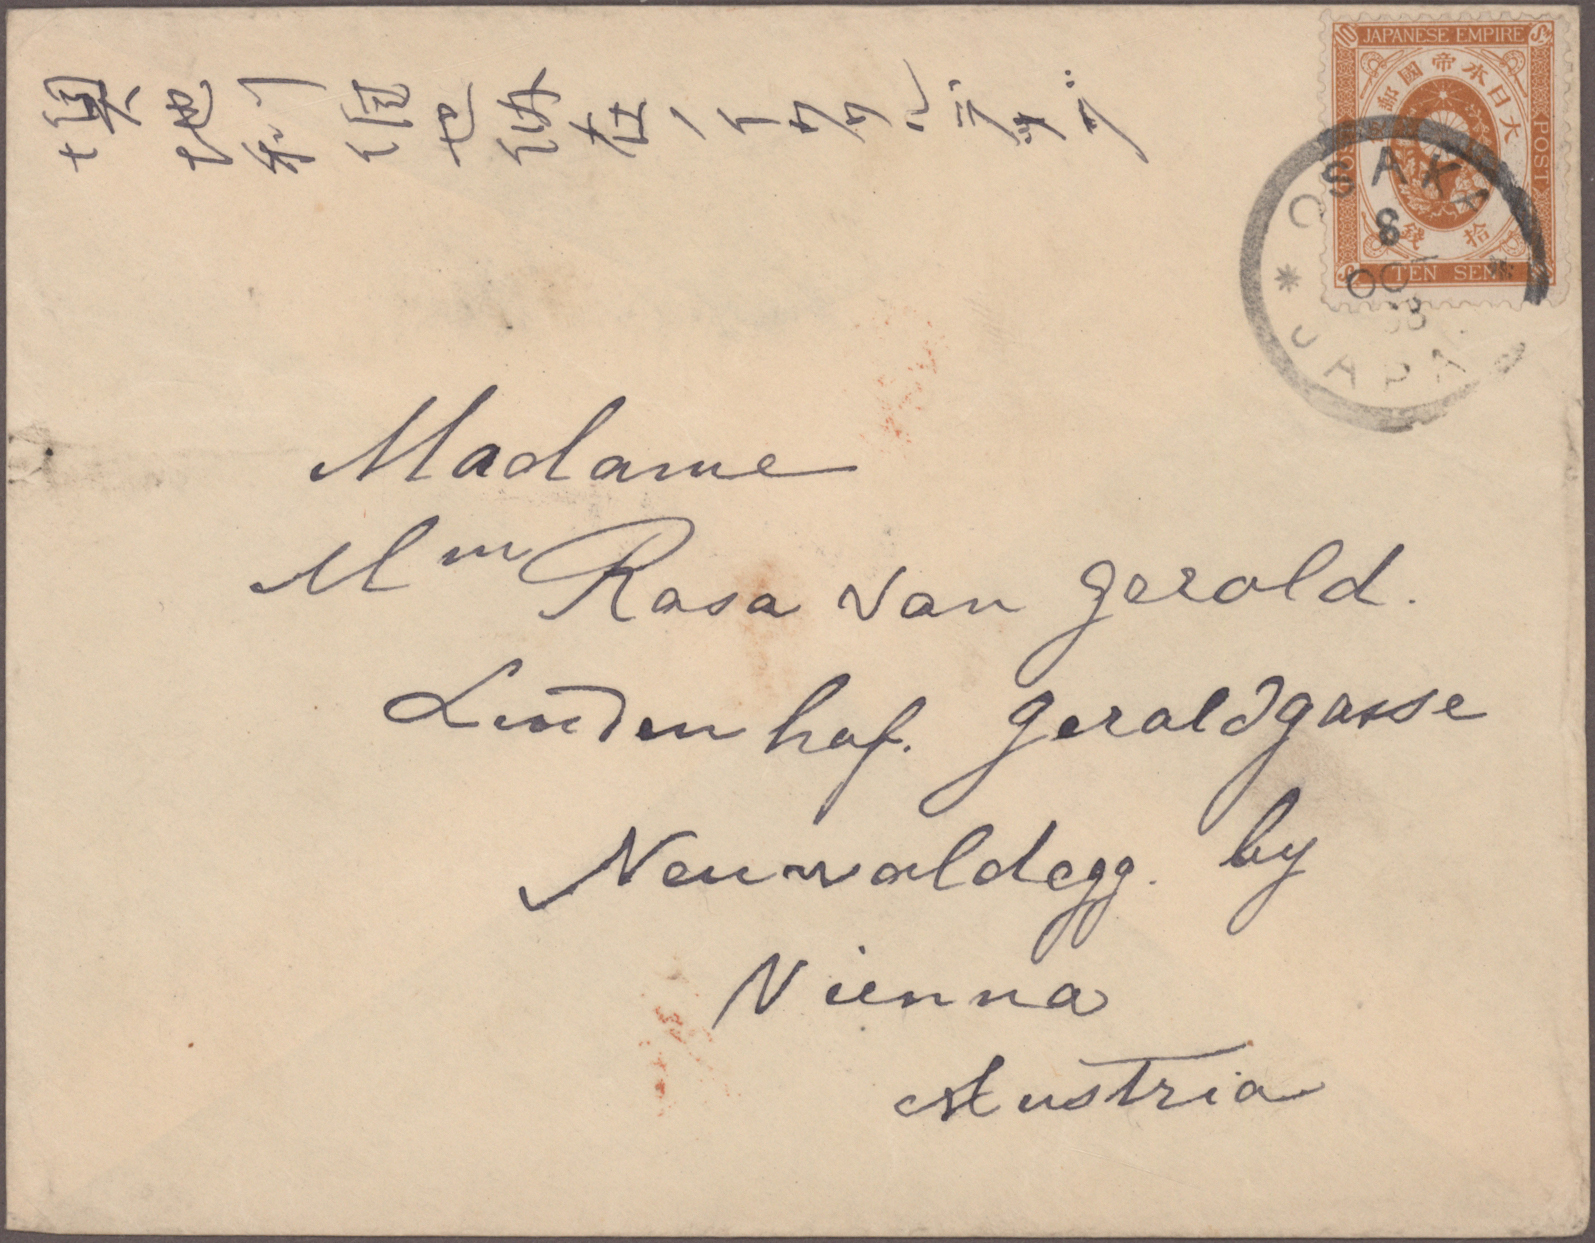 墺地利維也納在
10 JAPANESE EMPIRE Sn
大日本帝國郵
POST
拾錢
TEN SEN
OSAKA
8
OCT
JAPAN
Madame
Mm Rosa von Gerold.
Lindenhof. Geroldgasse
Neuwaldegg. by
Vienna
Austria